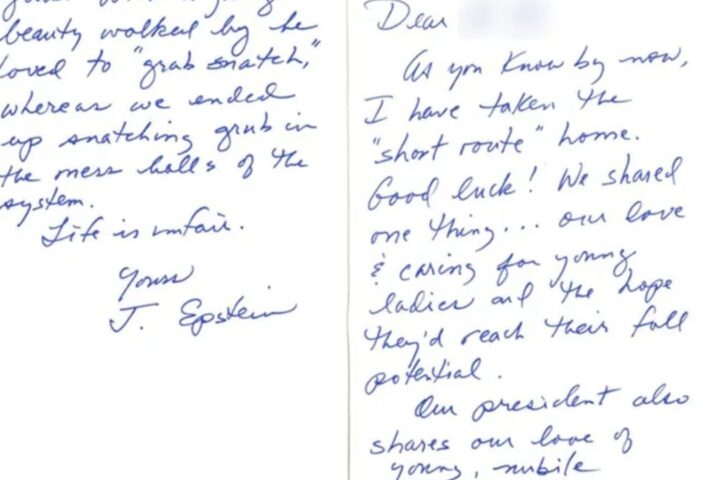 beauty walked by he
loved to "grab snatch,"
whereas we ended
up snatching grub in
the mess halls of the
system.
Life is unfair.
Yours
J. Epstein
Dear
As you know by now,
I have taken the
"short route" home.
Good luck! We shared
one thing... our love
& caring for young
ladies and the hope
they'd reach their full
potential.
Our president also
shares our love of
young, nubile